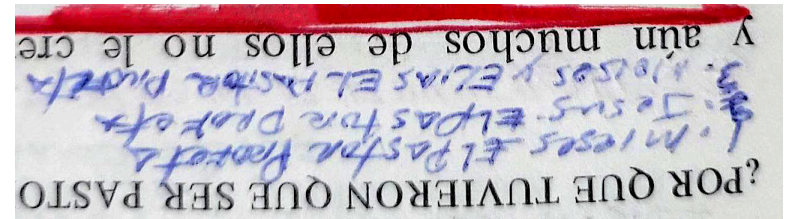 ¿POR QUE TUVIERON QUE SER PASTO
1. MOISES EL PASTOR PROFETA
2. JESUS. EL PASTOR PROFETA
3. MOISES y ELIAS EL PASTOR PROFETA
y aún muchos de ellos no le cre